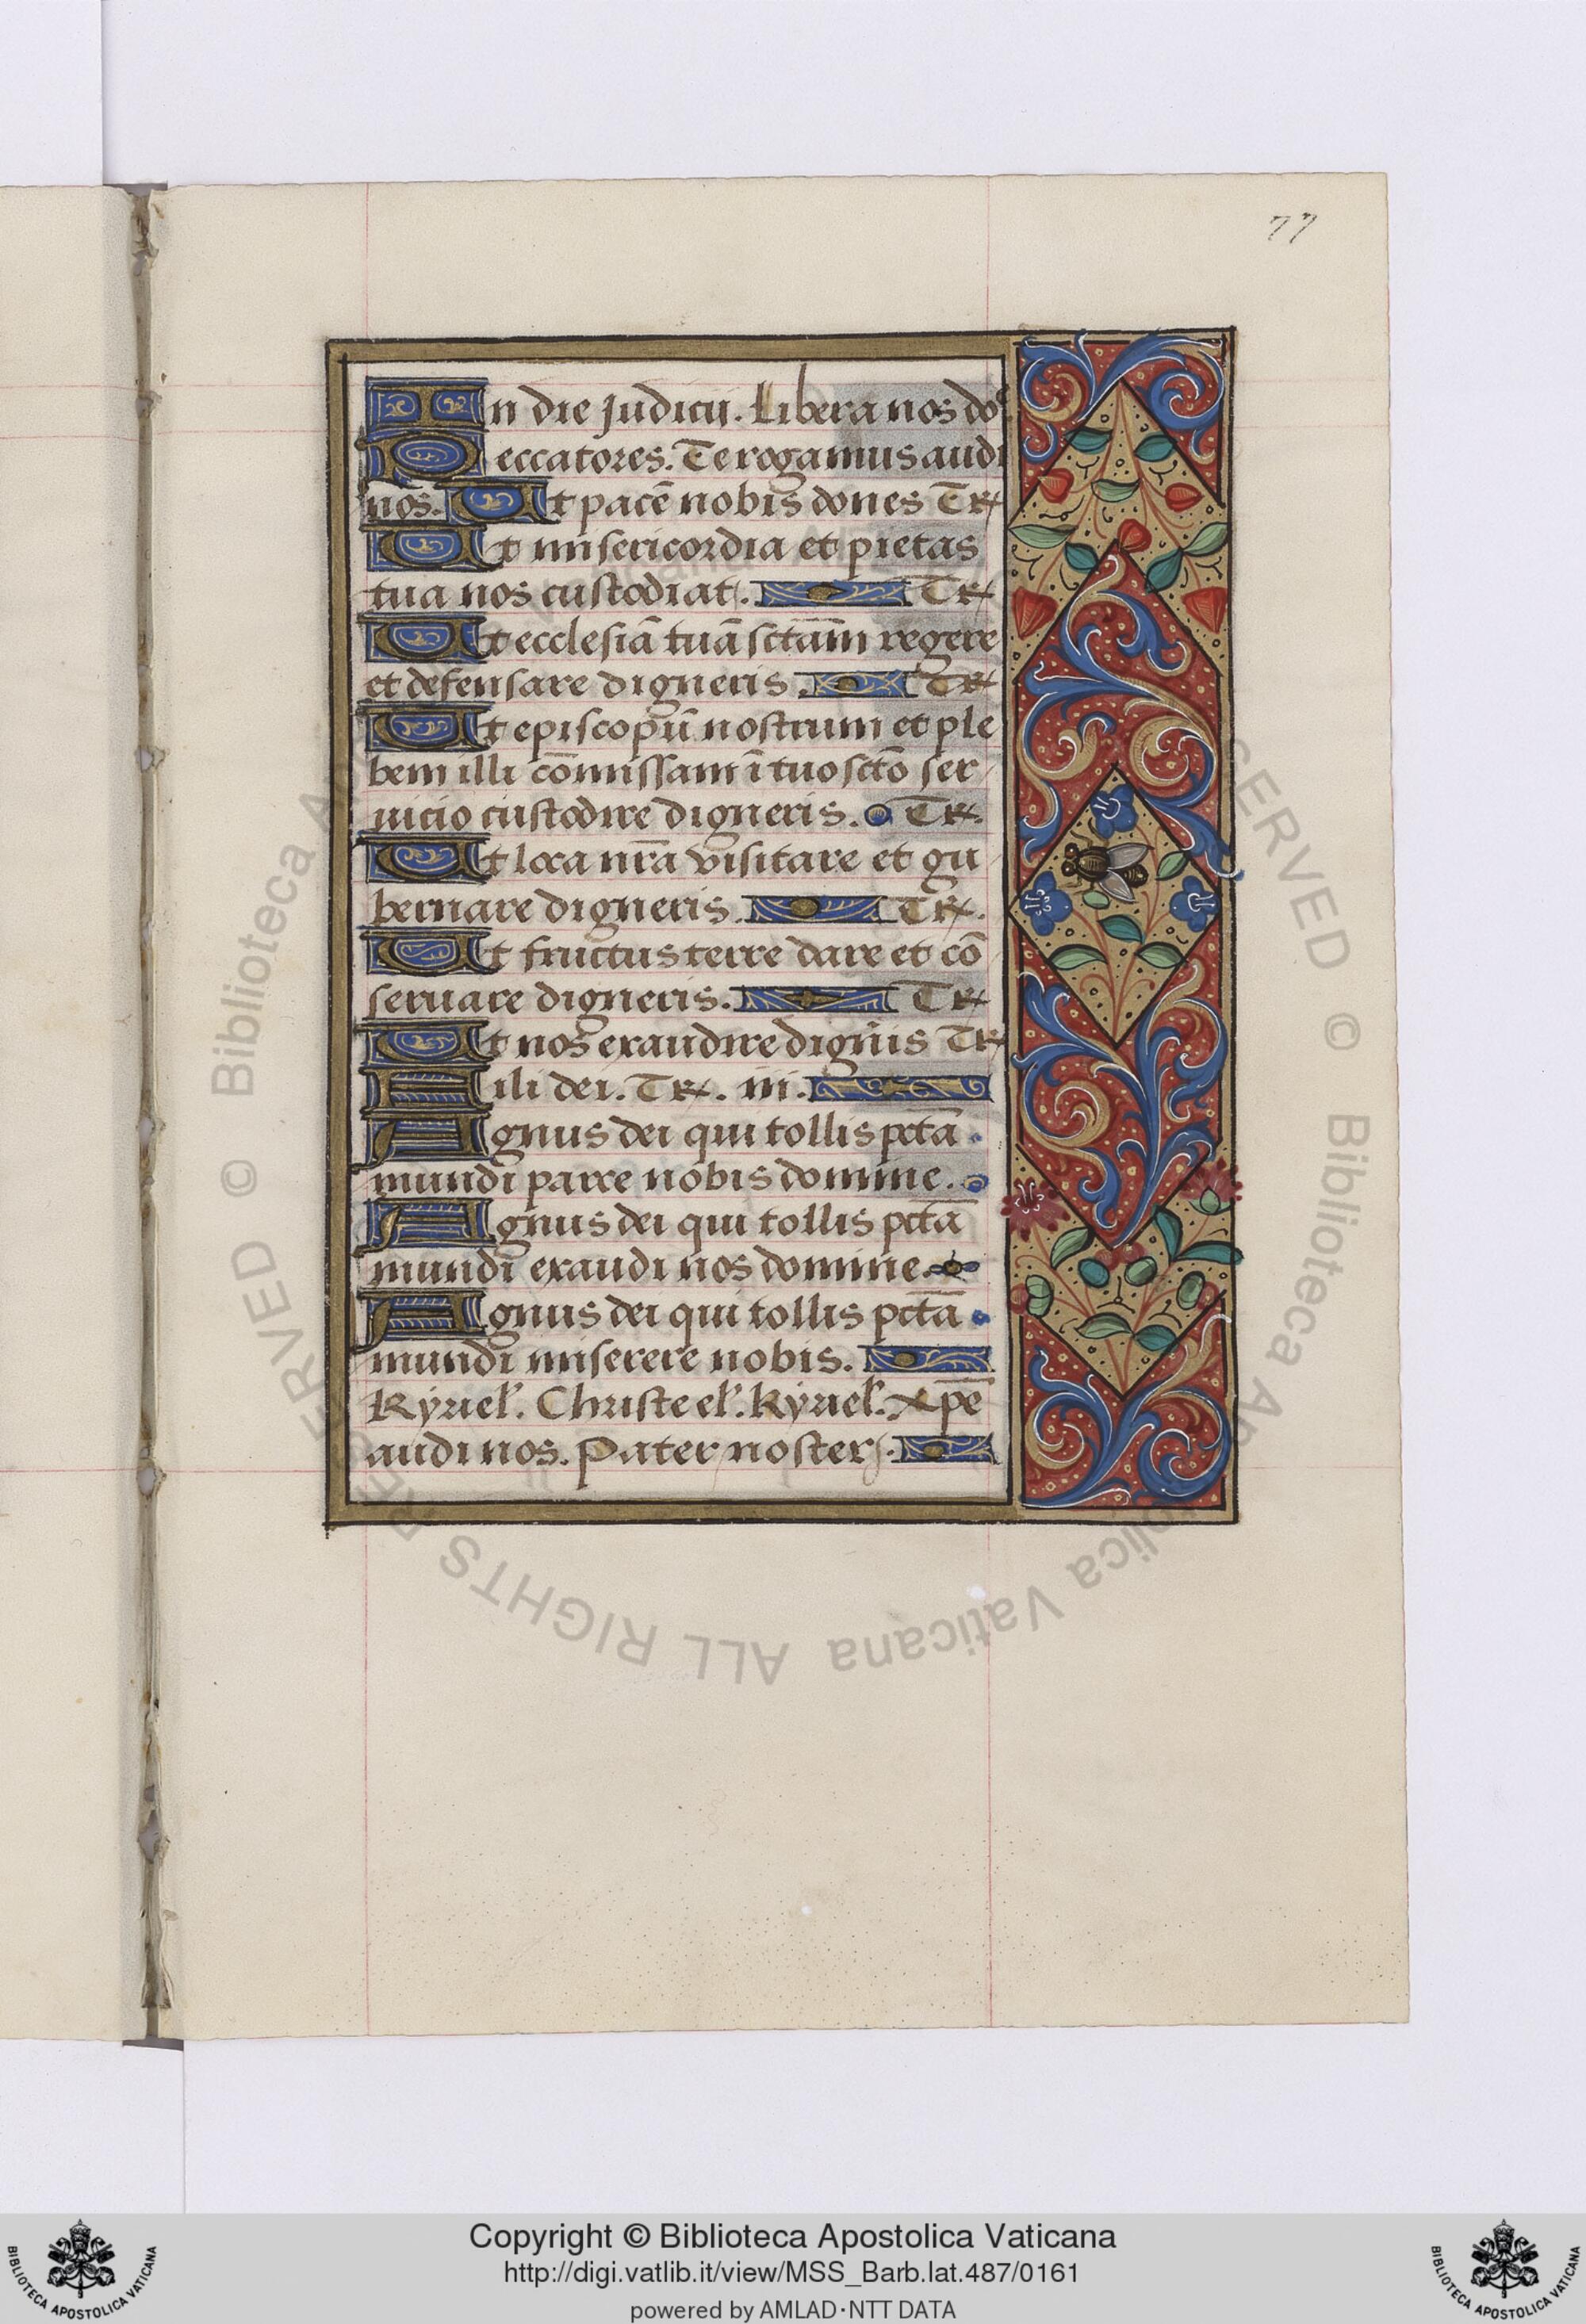 77
In die Judicij. Libera nos do
Peccatores. Te rogamus audi
nos. Ut pacē nobis dones TR
Ut misericordia et pietas
tua nos custodiat. TR
Ut ecclesiā tuā sctām regere
et defensare digneris. TR
Ut episcopū nostrum et ple
bem illi cōmissam ī tuo sctō ser
uicio custodire digneris. TR.
Ut loca nr̄a visitare et gu
bernare digneris. TR.
Ut fructus terre dare et cō
seruare digneris. TR
Ut nos exaudire dign̄is TR
Fili dei. TR. iii.
Agnus dei qui tollis pctā
mundi parce nobis domine.
Agnus dei qui tollis pctā
mundi exaudi nos domine.
Agnus dei qui tollis pctā
mundi miserere nobis.
Kyriel'. Christe el'. Kyriel'. Xpē
audi nos. Pater noster.
© Biblioteca Apostolica Vaticana ALL RIGHTS RESERVED
Copyright © Biblioteca Apostolica Vaticana
http://digi.vatlib.it/view/MSS_Barb.lat.487/0161
powered by AMLAD·NTT DATA
BIBLIOTECA APOSTOLICA VATICANA
BIBLIOTECA APOSTOLICA VATICANA